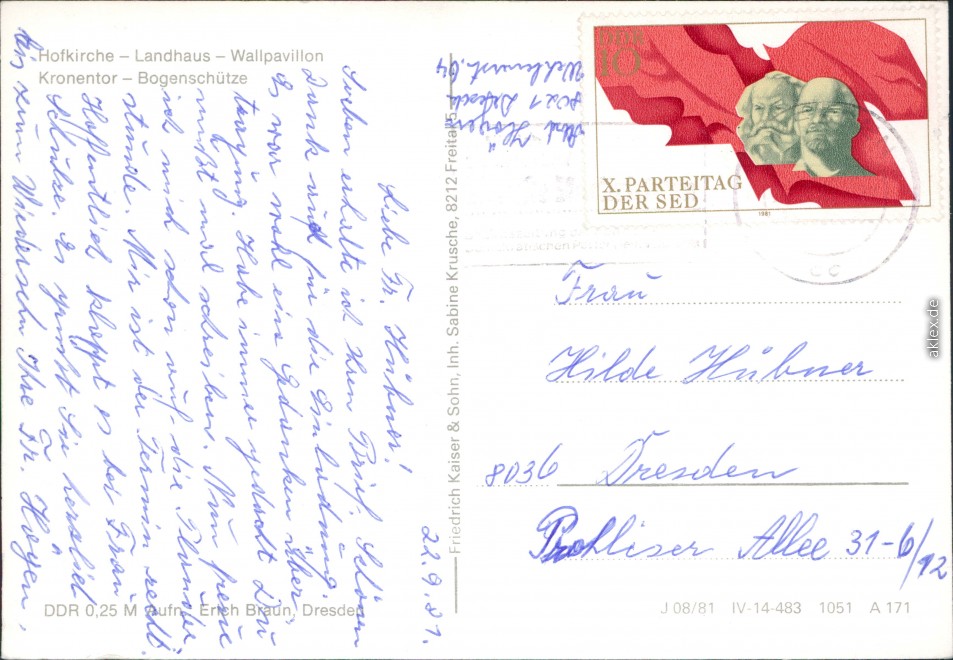 Hofkirche – Landhaus – Wallpavillon
Kronentor – Bogenschütze
22.9.81.
Liebe Fr. Hübner!
Soeben erhalte ich Ihren Brief. Schönen
Dank auch für die Einladung.
Es war wohl eine Gedanken über-
tragung. Habe immer gedacht Du
mußt mal schreiben. Nun freue
ich mich schon auf die Plauder-
stunde. Mir ist der Termin recht.
Hoffentlich klappt es bei Frau
Schütze. Es grüßt Sie herzlich
bis zum Wiedersehn Ihre Fr. Hoyer.
Hoyer
8021 Dresden
04
Friedrich Kaiser & Sohn, Inh. Sabine Krusche, 8212 Freital 5
DDR
10
X. PARTEITAG
DER SED
1981
Frau
Hilde Hübner
8036 Dresden
Prohliser Allee 31-6/12
DDR 0,25 M Aufn.: Erich Braun, Dresden
J 08/81 IV-14-483 1051 A 171
aklex.de